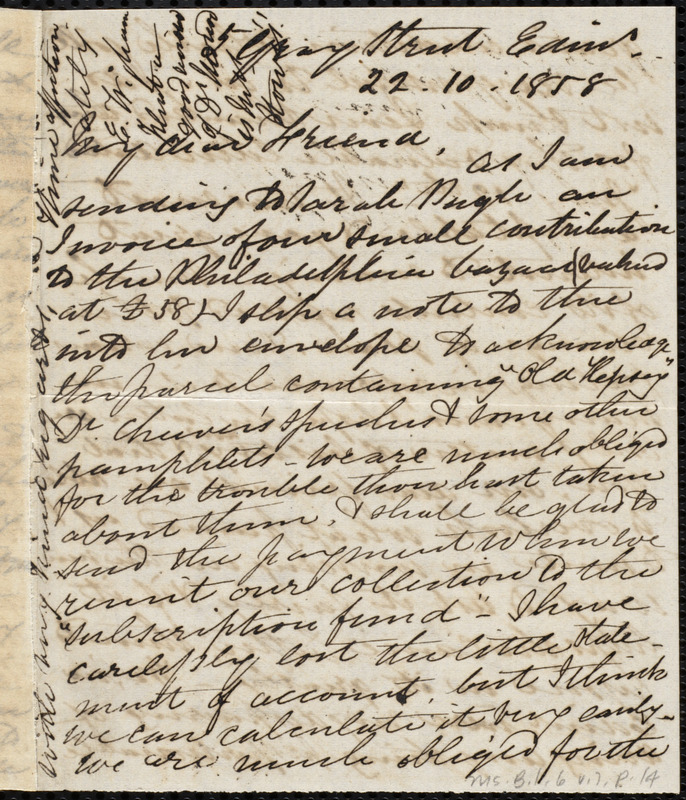 5 Gray Street Edinr.
22. 10. 1858
My dear Friend,
as I am
sending to Sarah Pugh an
Invoice of our small contribution
to the Philadelphia bazaar (valued
at £58) I slip a note to thee
into her envelope to acknowledge
the parcel containing "Old Hepsey"
Dr. Cheever's speeches & some other
pamphlets - we are much obliged
for the trouble thou hast taken
about them, & shall be glad to
send the payment when we
remit our collection to the
"subscription fund" - I have
carelessly lost the little state-
ment of account, but I think
we can calculate it very easily -
we are much obliged for the
with very kind regards,
Thine
E. Wigham
Ms. B.1.6 v.7, p.14